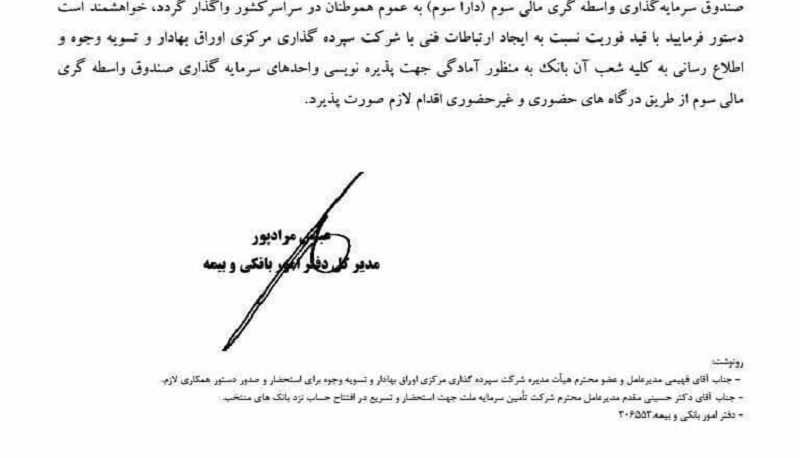 صندوق سرمایه‌گذاری واسطه گری مالی سوم (دارا سوم) به عموم هموطنان در سراسرکشور واگذار گردد، خواهشمند است
دستور فرمایید با قید فوریت نسبت به ایجاد ارتباطات فنی با شرکت سپرده گذاری مرکزی اوراق بهادار و تسویه وجوه و
اطلاع رسانی به کلیه شعب آن بانک به منظور آمادگی جهت پذیره نویسی واحدهای سرمایه گذاری صندوق واسطه گری
مالی سوم از طریق درگاه های حضوری و غیرحضوری اقدام لازم صورت پذیرد.
عباس مرادپور
مدیر کل دفتر امور بانکی و بیمه
رونوشت:
- جناب آقای فهیمی مدیرعامل و عضو محترم هیأت مدیره شرکت سپرده گذاری مرکزی اوراق بهادار و تسویه وجوه برای استحضار و صدور دستور همکاری لازم.
- جناب آقای دکتر حسینی مقدم مدیرعامل محترم شرکت تأمین سرمایه ملت جهت استحضار و تسریع در افتتاح حساب نزد بانک های منتخب.
- دفتر امور بانکی و بیمه.۲۰۶۵۵۲